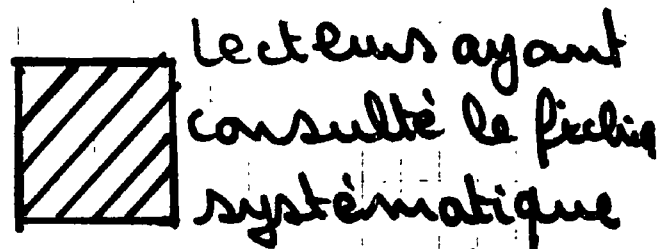 Lecteurs ayant
consulté le fichier
systématique